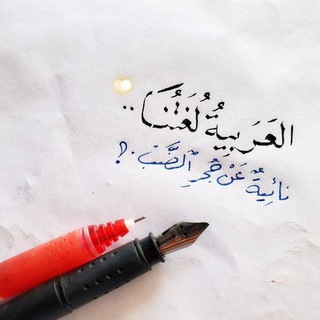 العَرَبِيةُ لُغَتُنَا..
نائِيةٌ عَنْ جُحْرِ ٱلضَّبِّ.؟!